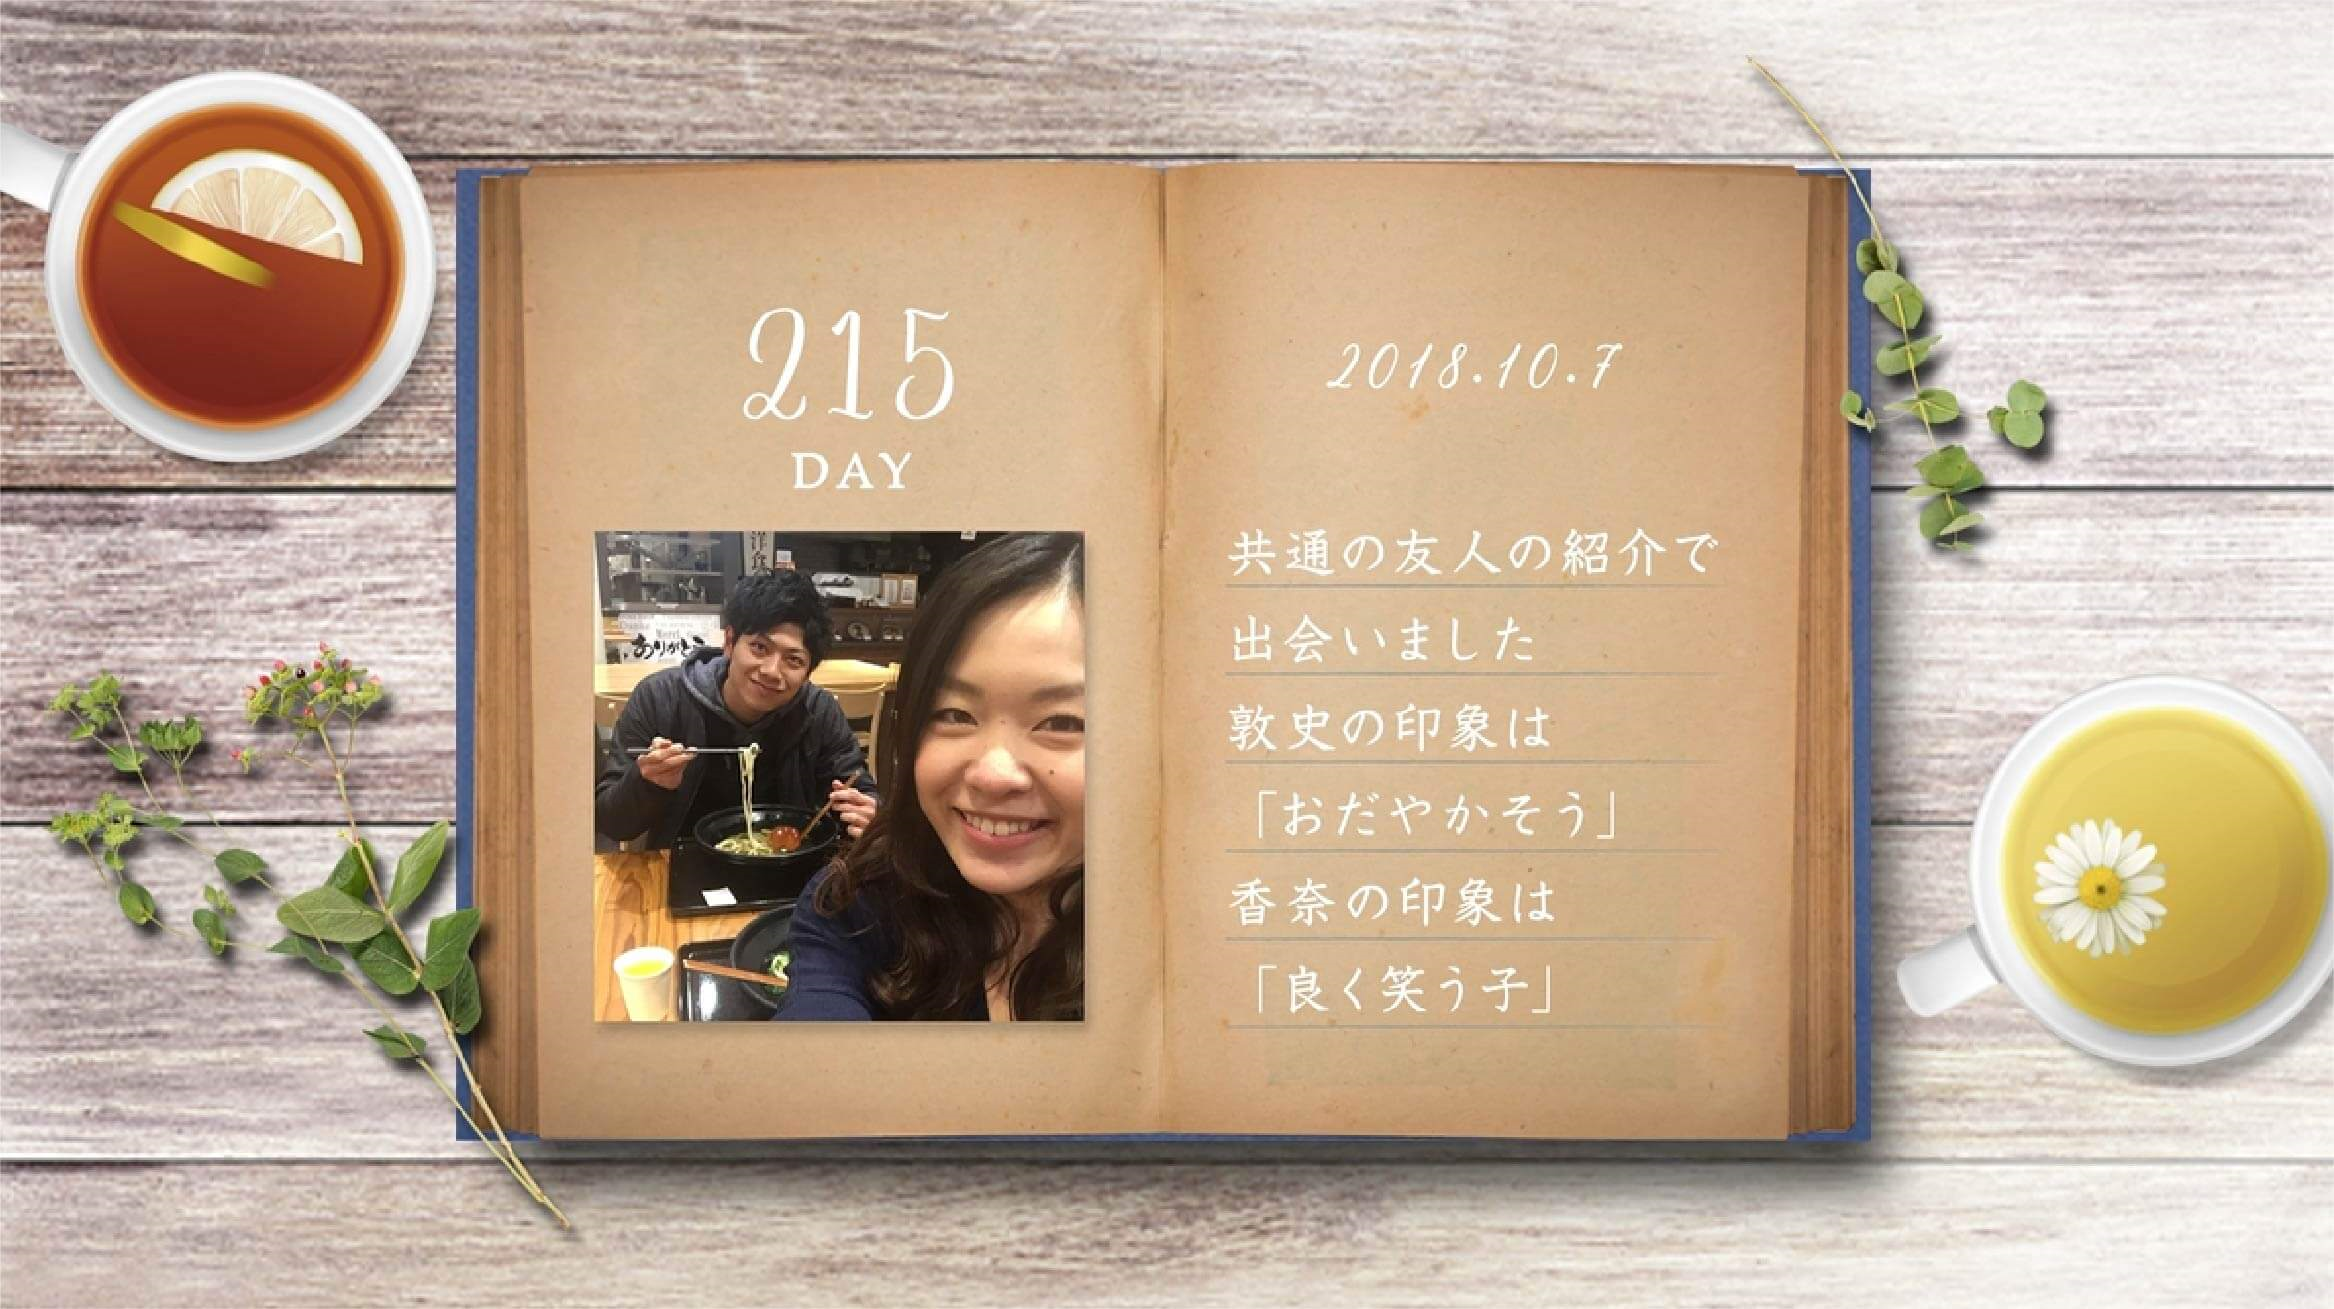 215
DAY
洋食
ありがとう
2018.10.7
共通の友人の紹介で
出会いました
敦史の印象は
「おだやかそう」
香奈の印象は
「良く笑う子」